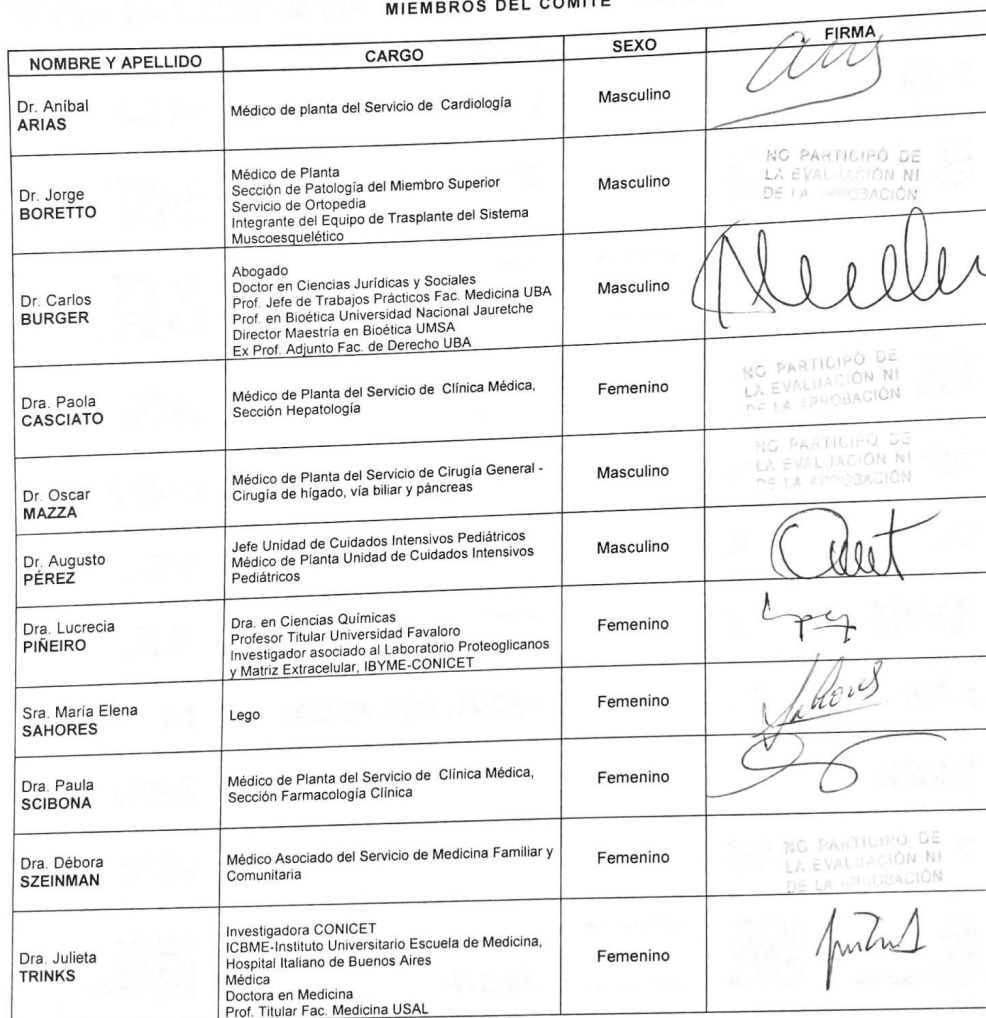 MIEMBROS DEL COMITÉ
NOMBRE Y APELLIDO
CARGO
SEXO
FIRMA
Dr. Aníbal
ARIAS
Médico de planta del Servicio de Cardiología
Masculino
Dr. Jorge
BORETTO
Médico de Planta
Sección de Patología del Miembro Superior
Servicio de Ortopedia
Integrante del Equipo de Trasplante del Sistema
Muscoesquelético
Masculino
NO PARTICIPÓ DE
LA EVALUACIÓN NI
DE LA APROBACIÓN
Dr. Carlos
BURGER
Abogado
Doctor en Ciencias Jurídicas y Sociales
Prof. Jefe de Trabajos Prácticos Fac. Medicina UBA
Prof. en Bioética Universidad Nacional Jauretche
Director Maestría en Bioética UMSA
Ex Prof. Adjunto Fac. de Derecho UBA
Masculino
Dra. Paola
CASCIATO
Médico de Planta del Servicio de Clínica Médica,
Sección Hepatología
Femenino
NO PARTICIPÓ DE
LA EVALUACIÓN NI
DE LA APROBACIÓN
Dr. Oscar
MAZZA
Médico de Planta del Servicio de Cirugía General -
Cirugía de hígado, vía biliar y páncreas
Masculino
NO PARTICIPÓ DE
LA EVALUACIÓN NI
DE LA APROBACIÓN
Dr. Augusto
PÉREZ
Jefe Unidad de Cuidados Intensivos Pediátricos
Médico de Planta Unidad de Cuidados Intensivos
Pediátricos
Masculino
Dra. Lucrecia
PIÑEIRO
Dra. en Ciencias Químicas
Profesor Titular Universidad Favaloro
Investigador asociado al Laboratorio Proteoglicanos
y Matriz Extracelular, IBYME-CONICET
Femenino
Sra. María Elena
SAHORES
Lego
Femenino
Sahores
Dra. Paula
SCIBONA
Médico de Planta del Servicio de Clínica Médica,
Sección Farmacología Clínica
Femenino
Dra. Débora
SZEINMAN
Médico Asociado del Servicio de Medicina Familiar y
Comunitaria
Femenino
NO PARTICIPÓ DE
LA EVALUACIÓN NI
DE LA APROBACIÓN
Dra. Julieta
TRINKS
Investigadora CONICET
ICBME-Instituto Universitario Escuela de Medicina,
Hospital Italiano de Buenos Aires
Médica
Doctora en Medicina
Prof. Titular Fac. Medicina USAL
Femenino